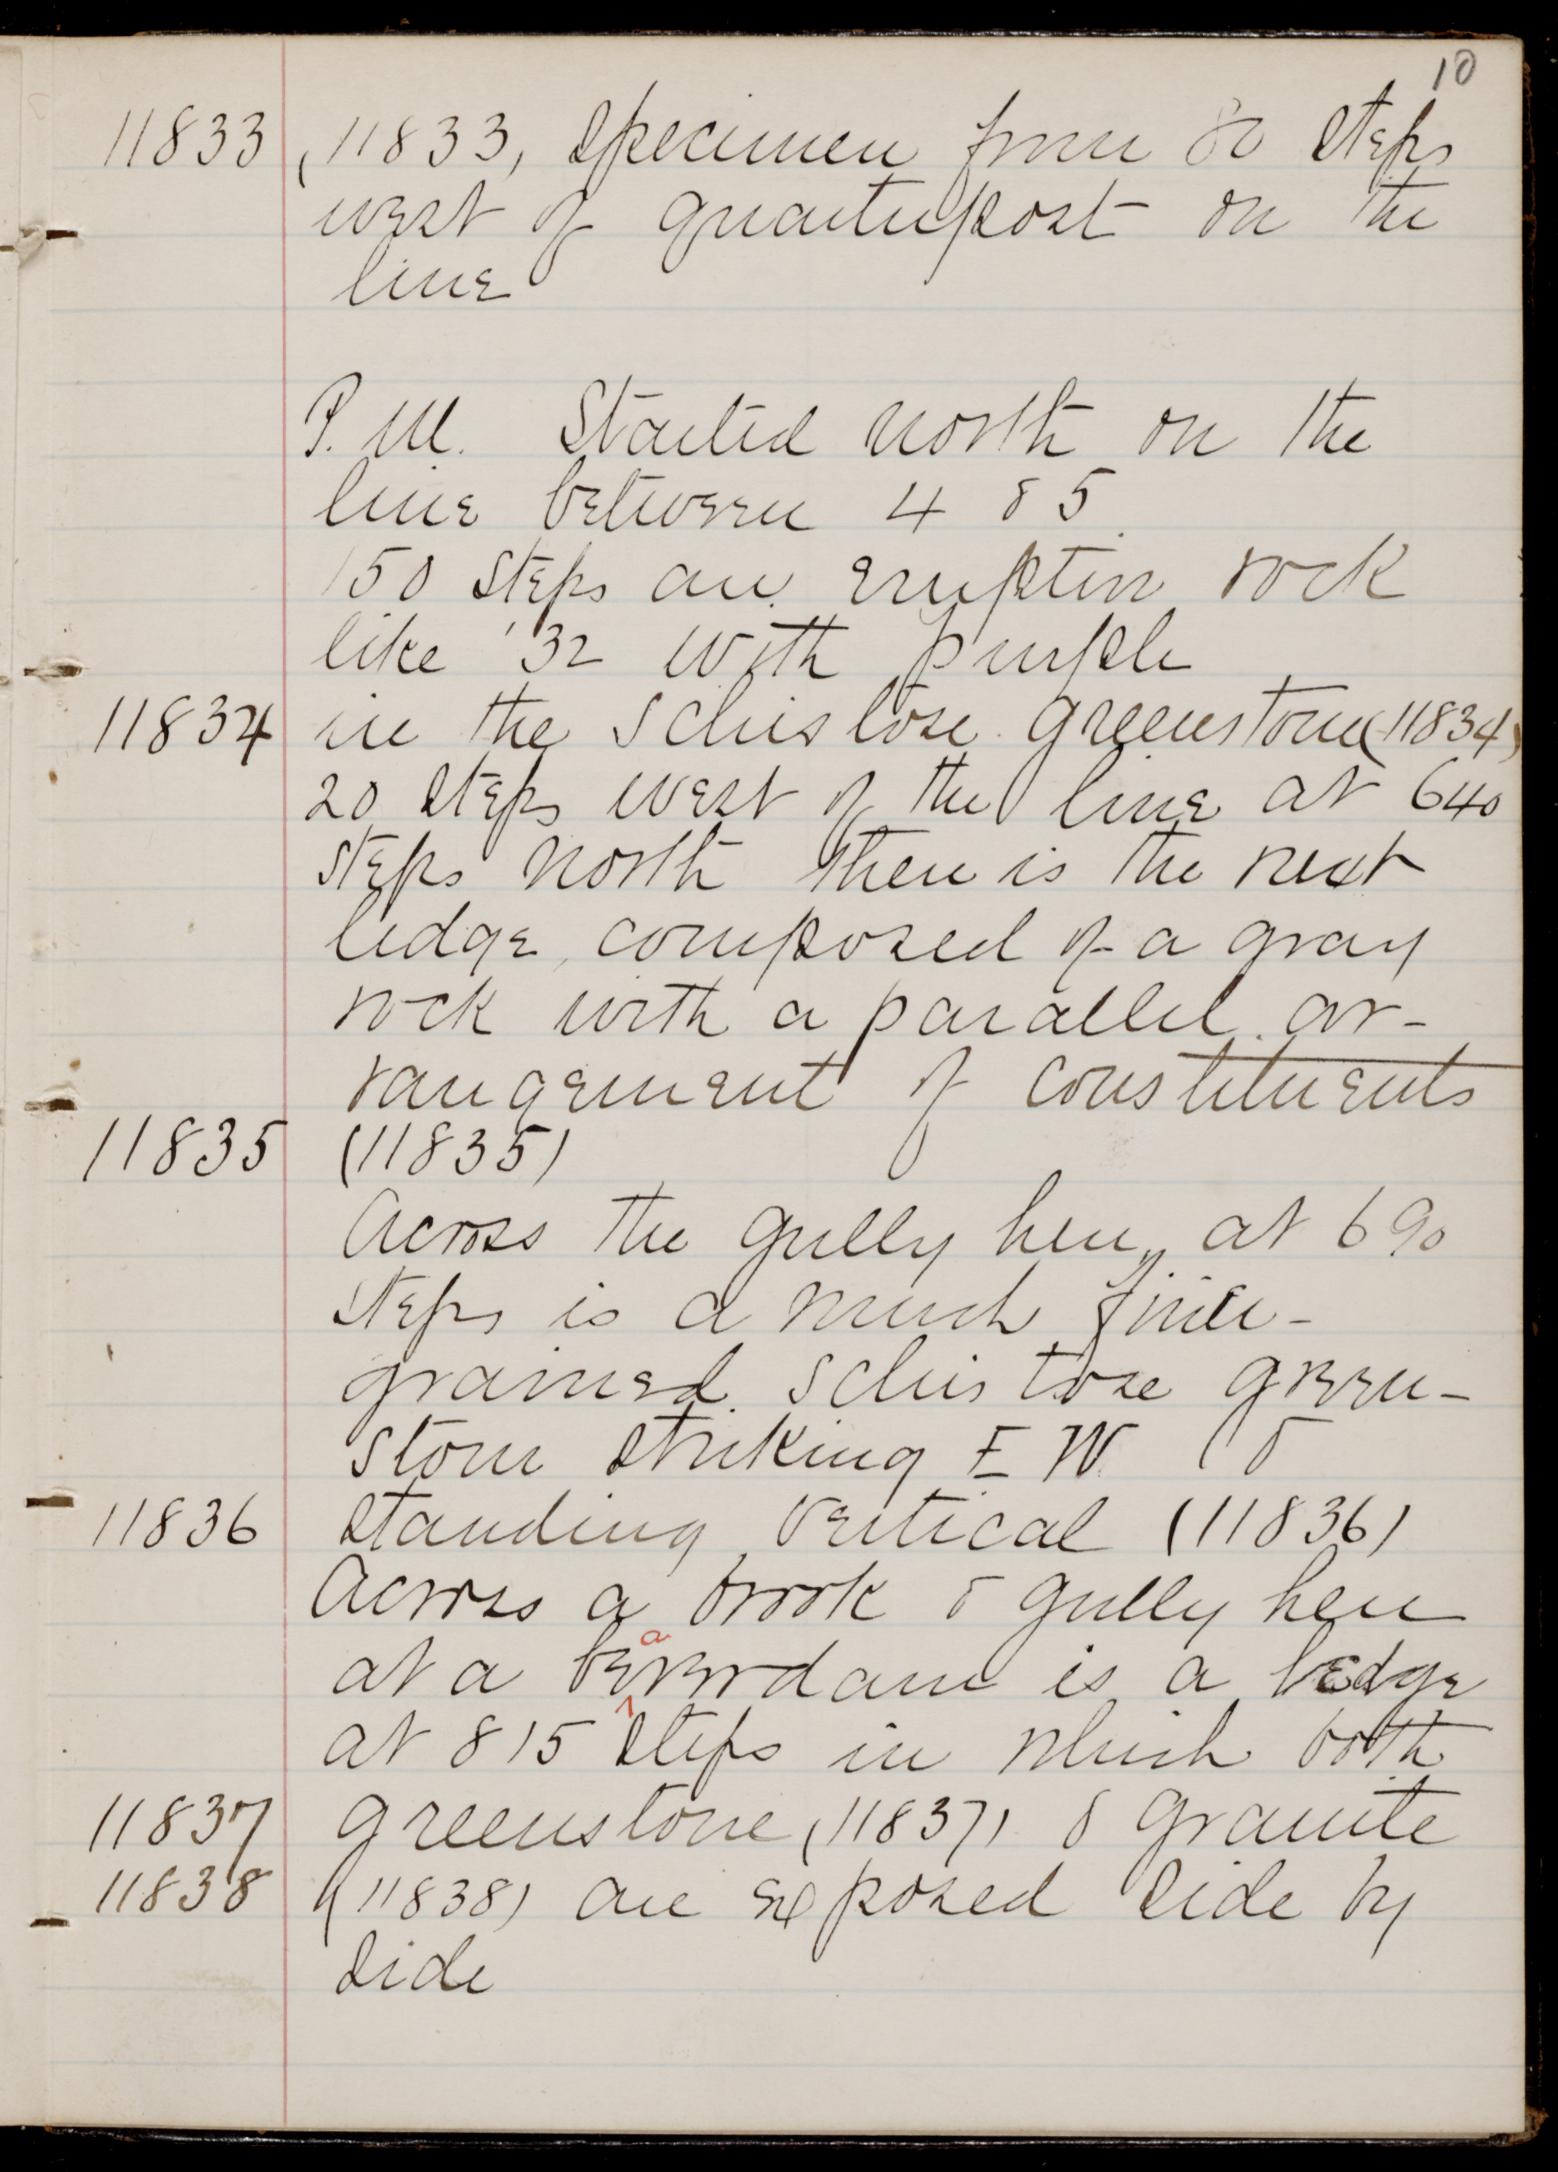 10
11833 (11833) Specimen from 80 steps
west of quarterpost on the
line
P.M. Started north on the
line between 4 & 5
150 steps an eruptive rock
like '32 with purple
11834 in the schistose greenstone (11834)
20 steps west of the line at 640
steps north there is the next
ledge, composed of a gray
rock with a parallel ar-
rangement of constituents
11835 (11835)
Across the gully here, at 690
steps is a much finer-
grained schistose green-
stone striking E W. &
11836 standing vertical (11836)
Across a brook & gully here
at a beaverdam is a ledge
at 815 steps in which both
11837 greenstone (11837) & granite
11838 (11838) are exposed side by
side